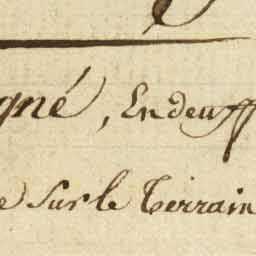 gné, En deuff
e Sur le Terrain